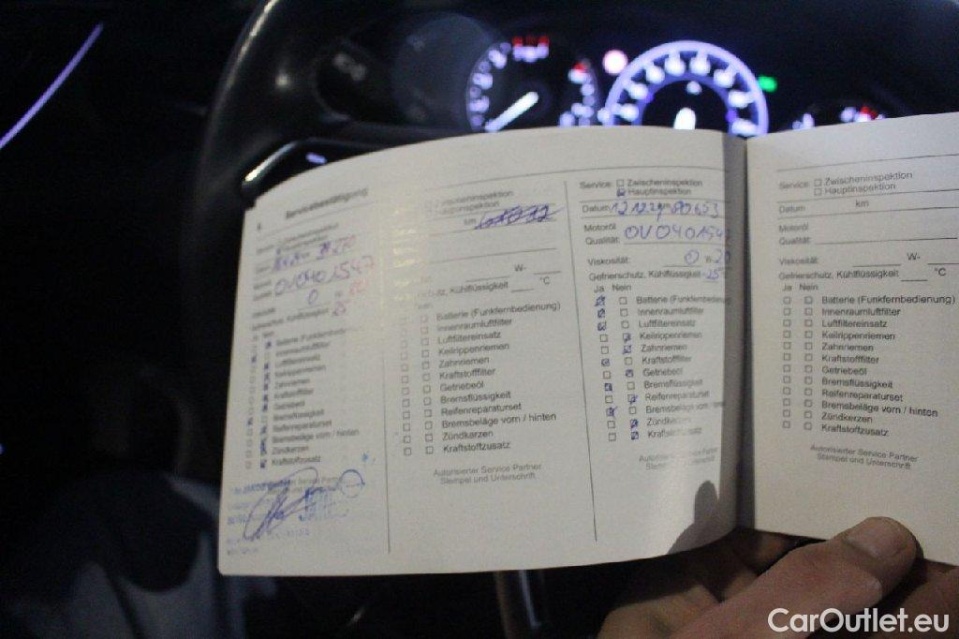 Servicebestätigung
0V0401547
0 W-
Gefrierschutz, Kühlflüssigkeit 25
Batterie (Funkfernbedienung)
Innenraumluftfilter
Luftfiltereinsatz
Keilrippenriemen
Zahnriemen
Kraftstofffilter
Getriebeöl
Bremsflüssigkeit
Reifenreparaturset
Bremsbeläge vorn / hinten
Zündkerzen
Kraftstoffzusatz
km
W-
°C
Batterie (Funkfernbedienung)
Innenraumluftfilter
Luftfiltereinsatz
Keilrippenriemen
Zahnriemen
Kraftstofffilter
Getriebeöl
Bremsflüssigkeit
Reifenreparaturset
Bremsbeläge vorn / hinten
Zündkerzen
Kraftstoffzusatz
Autorisierter Service Partner
Stempel und Unterschrift
Service: Zwischeninspektion
Hauptinspektion
Datum 12.12.
Motoröl
Qualität: 0V0401547
Viskosität: 0 W-20
Gefrierschutz, Kühlflüssigkeit -25
Ja Nein
Batterie (Funkfernbedienung
Innenraumluftfilter
Luftfiltereinsatz
Keilrippenriemen
Zahnriemen
Kraftstofffilter
Getriebeöl
Bremsflüssigkeit
Reifenreparaturset
Bremsbeläge vorn
Zündkerzen
Kraftstoffzusatz
Autorisierter Service
Stempel und Unterschrift
Service: Zwischeninspektion
Hauptinspektion
Datum km
Motoröl
Qualität:
Viskosität: W-
Gefrierschutz, Kühlflüssigkeit °C
Ja Nein
Batterie (Funkfernbedienung)
Innenraumluftfilter
Luftfiltereinsatz
Keilrippenriemen
Zahnriemen
Kraftstofffilter
Getriebeöl
Bremsflüssigkeit
Reifenreparaturset
Bremsbeläge vorn / hinten
Zündkerzen
Kraftstoffzusatz
Autorisierter Service Partner
Stempel und Unterschrift
CarOutlet.eu